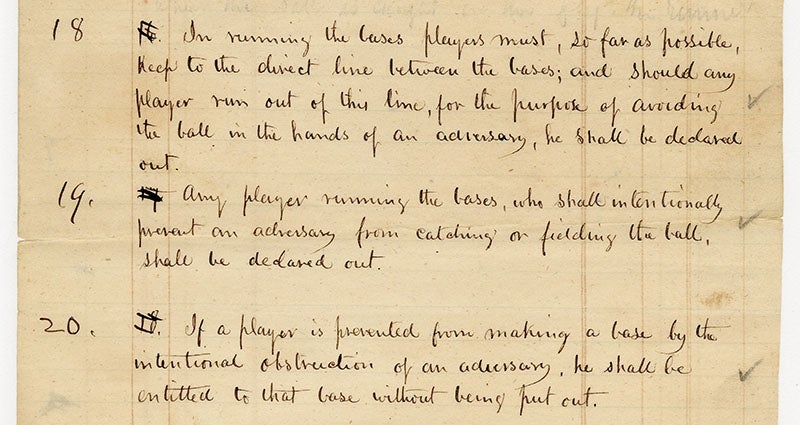 18 16. In running the bases players must, so far as possible,
keep to the direct line between the bases; and should any
player run out of this line, for the purpose of avoiding
the ball in the hands of an adversary, he shall be declared
out.
19. Any player running the bases, who shall intentionally
prevent an adversary from catching or fielding the ball,
shall be declared out.
20. 18. If a player is prevented from making a base by the
intentional obstruction of an adversary, he shall be
entitled to that base without being put out.